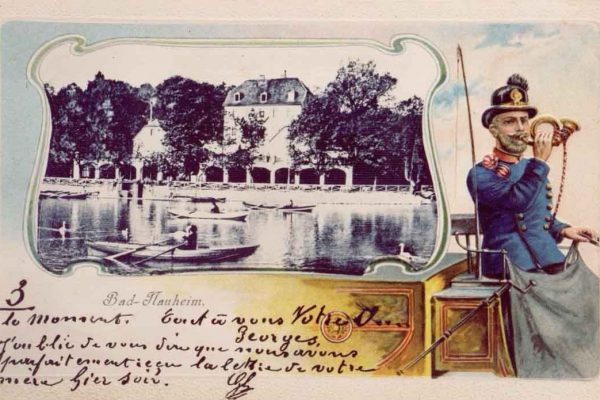 Bad-Nauheim.
3
le moment. Tout à vous Votre
Georges,
J'oublie de vous dire que nous avons
parfaitement reçu la lettre de votre
mère hier soir.